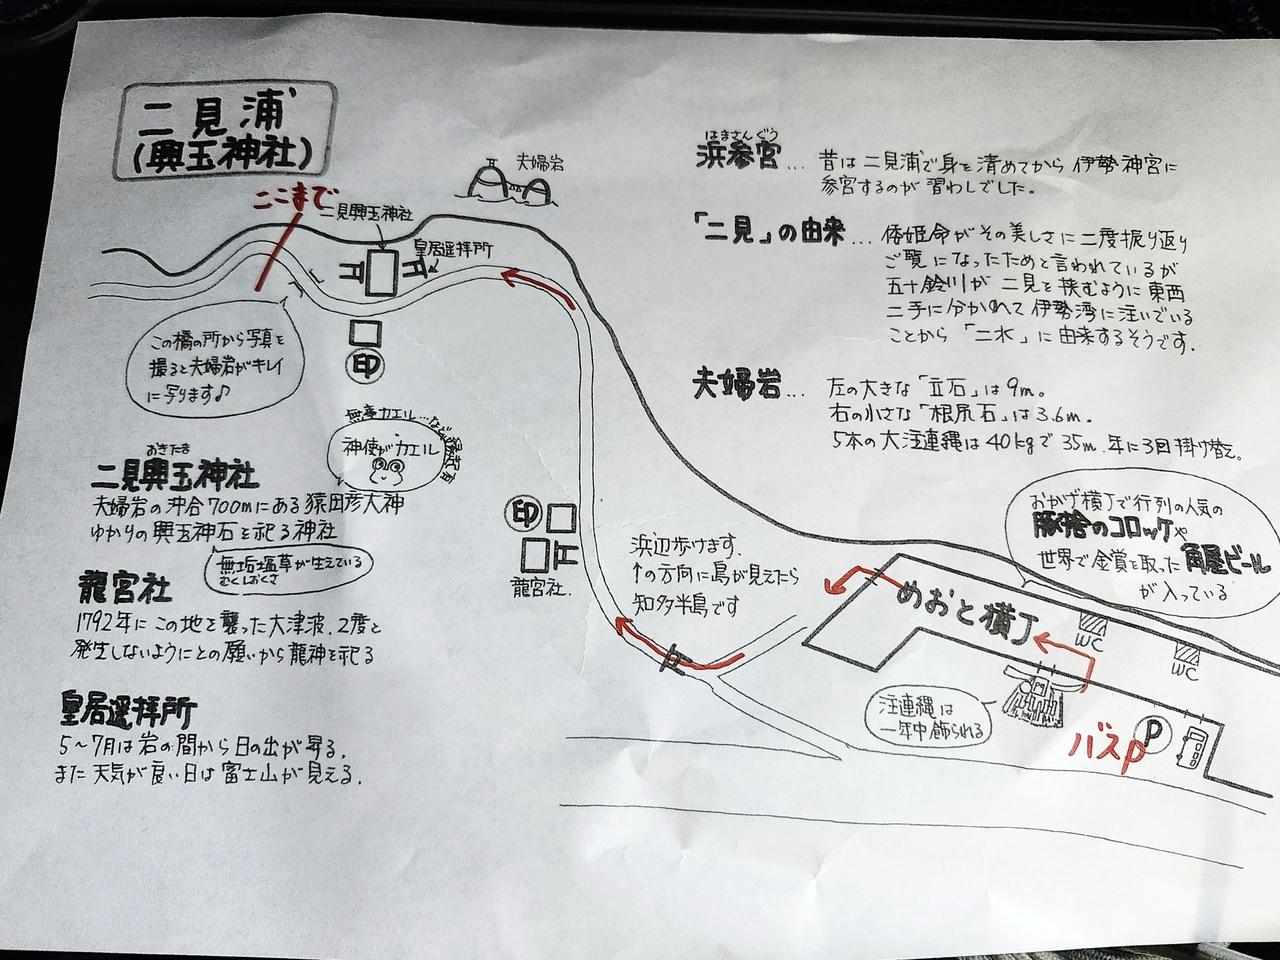 二見浦
(興玉神社)
ここまで
二見興玉神社
皇居遥拝所
夫婦岩
この橋の所から写真を
撮ると夫婦岩がキレイ
に写ります♪
印
無事カエル…など縁起有
神使がカエル
おきたま
二見興玉神社
夫婦岩の沖合700mにある猿田彦大神
ゆかりの興玉神石を祀る神社
無垢塩草が生えている
むくしおくさ
龍宮社
1792年にこの地を襲った大津波、2度と
発生しないようにとの願いから龍神を祀る
皇居遥拝所
5〜7月は岩の間から日の出が昇る、
また天気が良い日は富士山が見える、
はまさんぐう
浜参宮… 昔は二見浦で身を清めてから伊勢神宮に
参宮するのが習わしでした。
「二見」の由来… 倭姫命がその美しさに二度振り返り
ご覧になったためと言われているが
五十鈴川が二見を挟むように東西
二手に分かれて伊勢湾に注いでいる
ことから「二水」に由来するそうです。
夫婦岩… 左の大きな「立石」は9m。
右の小さな「根尻石」は3.6m。
5本の大注連縄は40kgで35m、年に3回掛け替え。
印
龍宮社.
浜辺歩けます、
↑の方向に島が見えたら
知多半島です
おかげ横丁で行列の人気の
豚捨のコロッケや
世界で金賞を取った角屋ビール
が入っている
めおと横丁
WC
WC
注連縄は
一年中飾られる
バスP
P